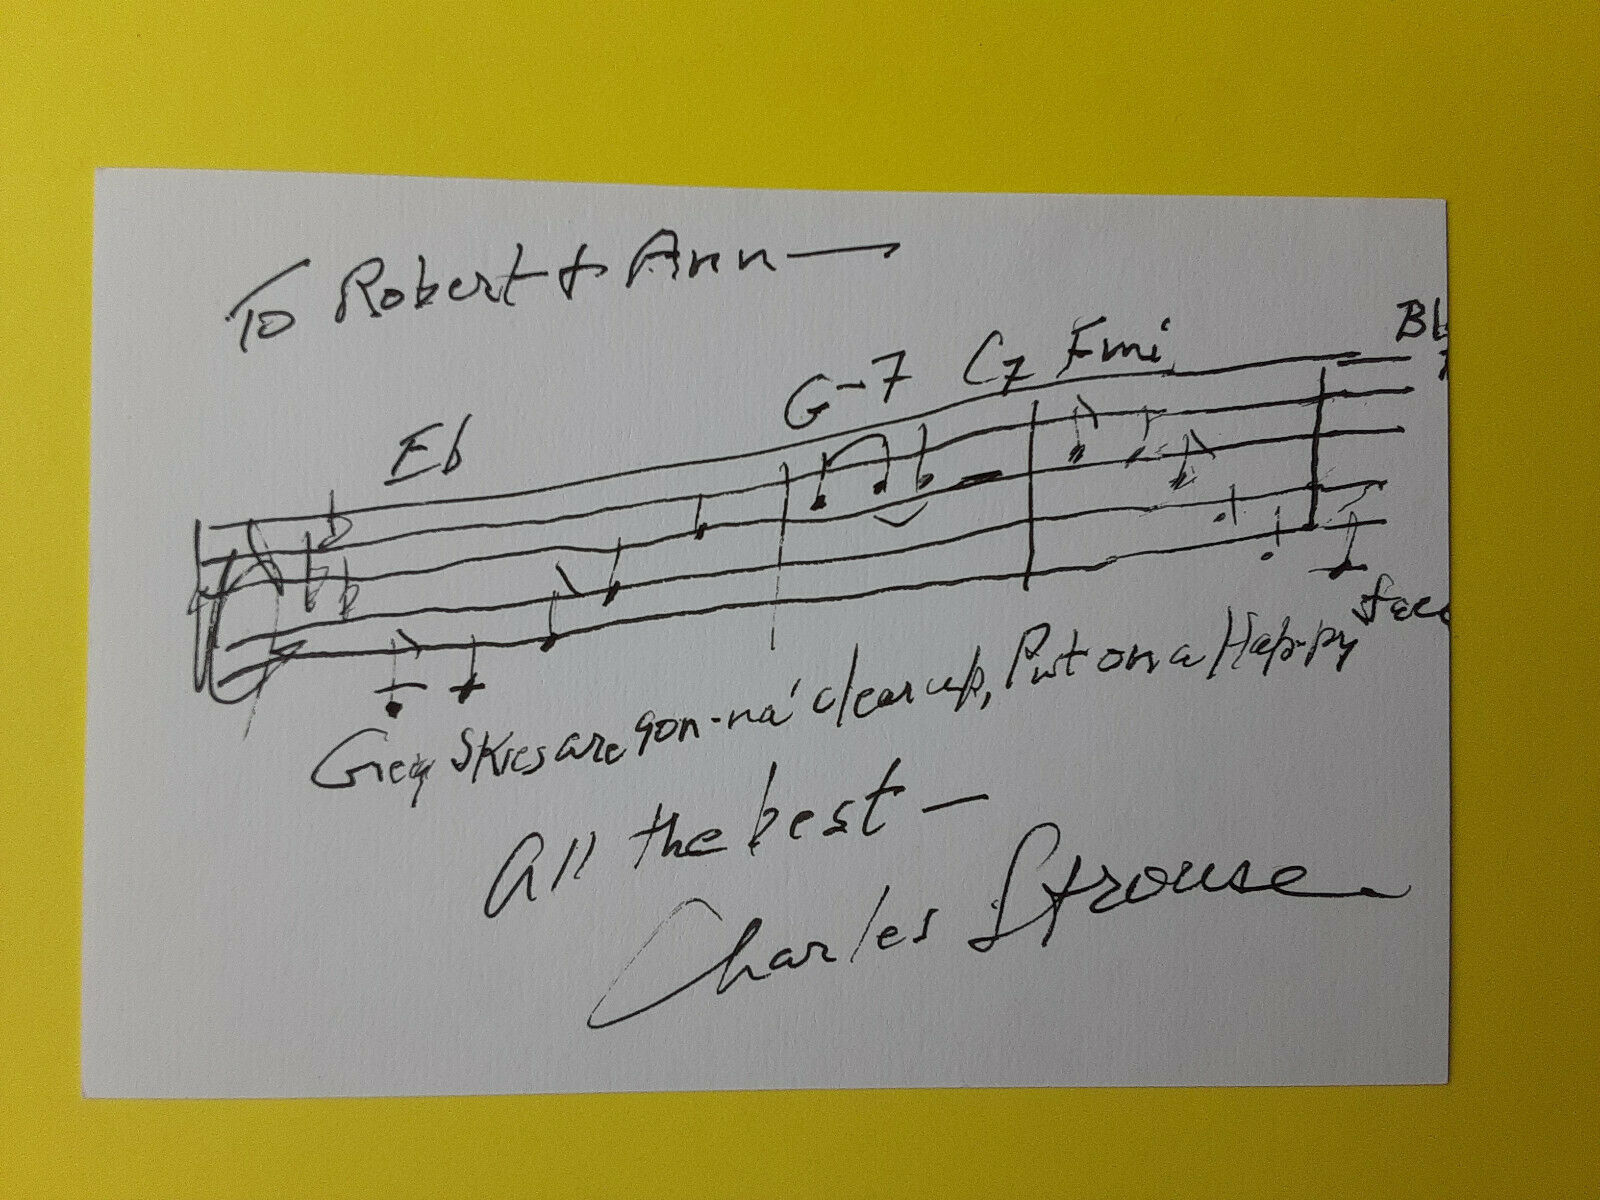 To Robert + Ann —
Eb G-7 C7 Fmi Bb
Grey Skies are gon-na' clear up, Put on a Hap-py face
All the best —
Charles Strouse